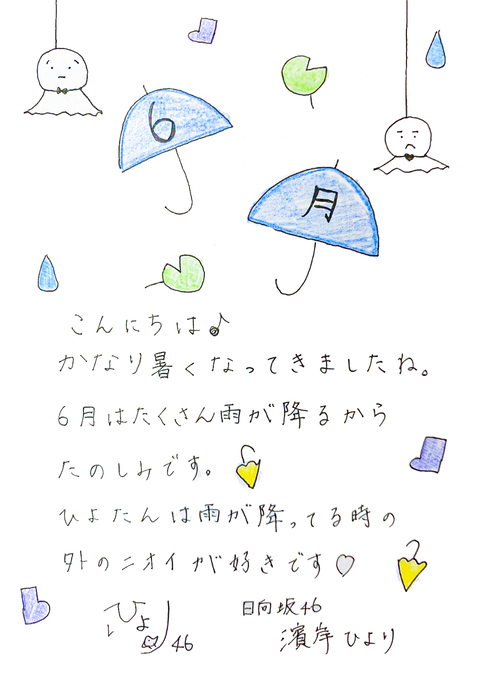 6
月
こんにちは♪
かなり暑くなってきましたね。
6月はたくさん雨が降るから
たのしみです。
ひよたんは雨が降ってる時の
外のニオイが好きです♡
ひより46
日向坂46
濱岸ひより